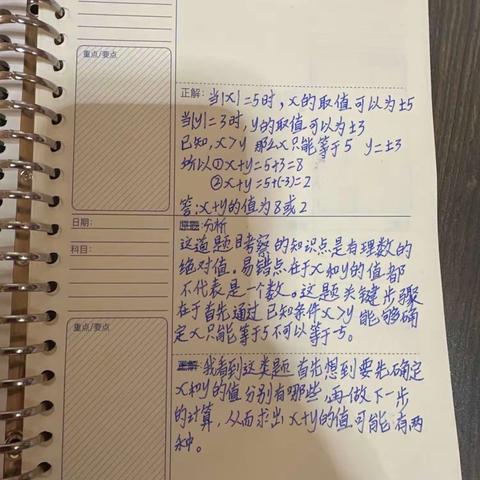 重点/要点
正解: 当|x|=5时,x的取值可以为±5
当|y|=3时,y的取值可以为±3
已知,x>y 那么x只能等于5 y=±3
所以①x+y=5+3=8
②x+y=5+(-3)=2
答:x+y的值为8或2
日期:
科目:
原题: 分析
这道题目考察的知识点是有理数的
绝对值。易错点在于x和y的值都
不代表是一个数。这题关键步骤
在于首先通过已知条件x>y能够确
定x只能等于5不可以等于-5。
重点/要点
正解: 我看到这类题首先想到要先确定
x和y的值分别有哪些,再做下一步
的计算,从而求出x+y的值可能有两
种。